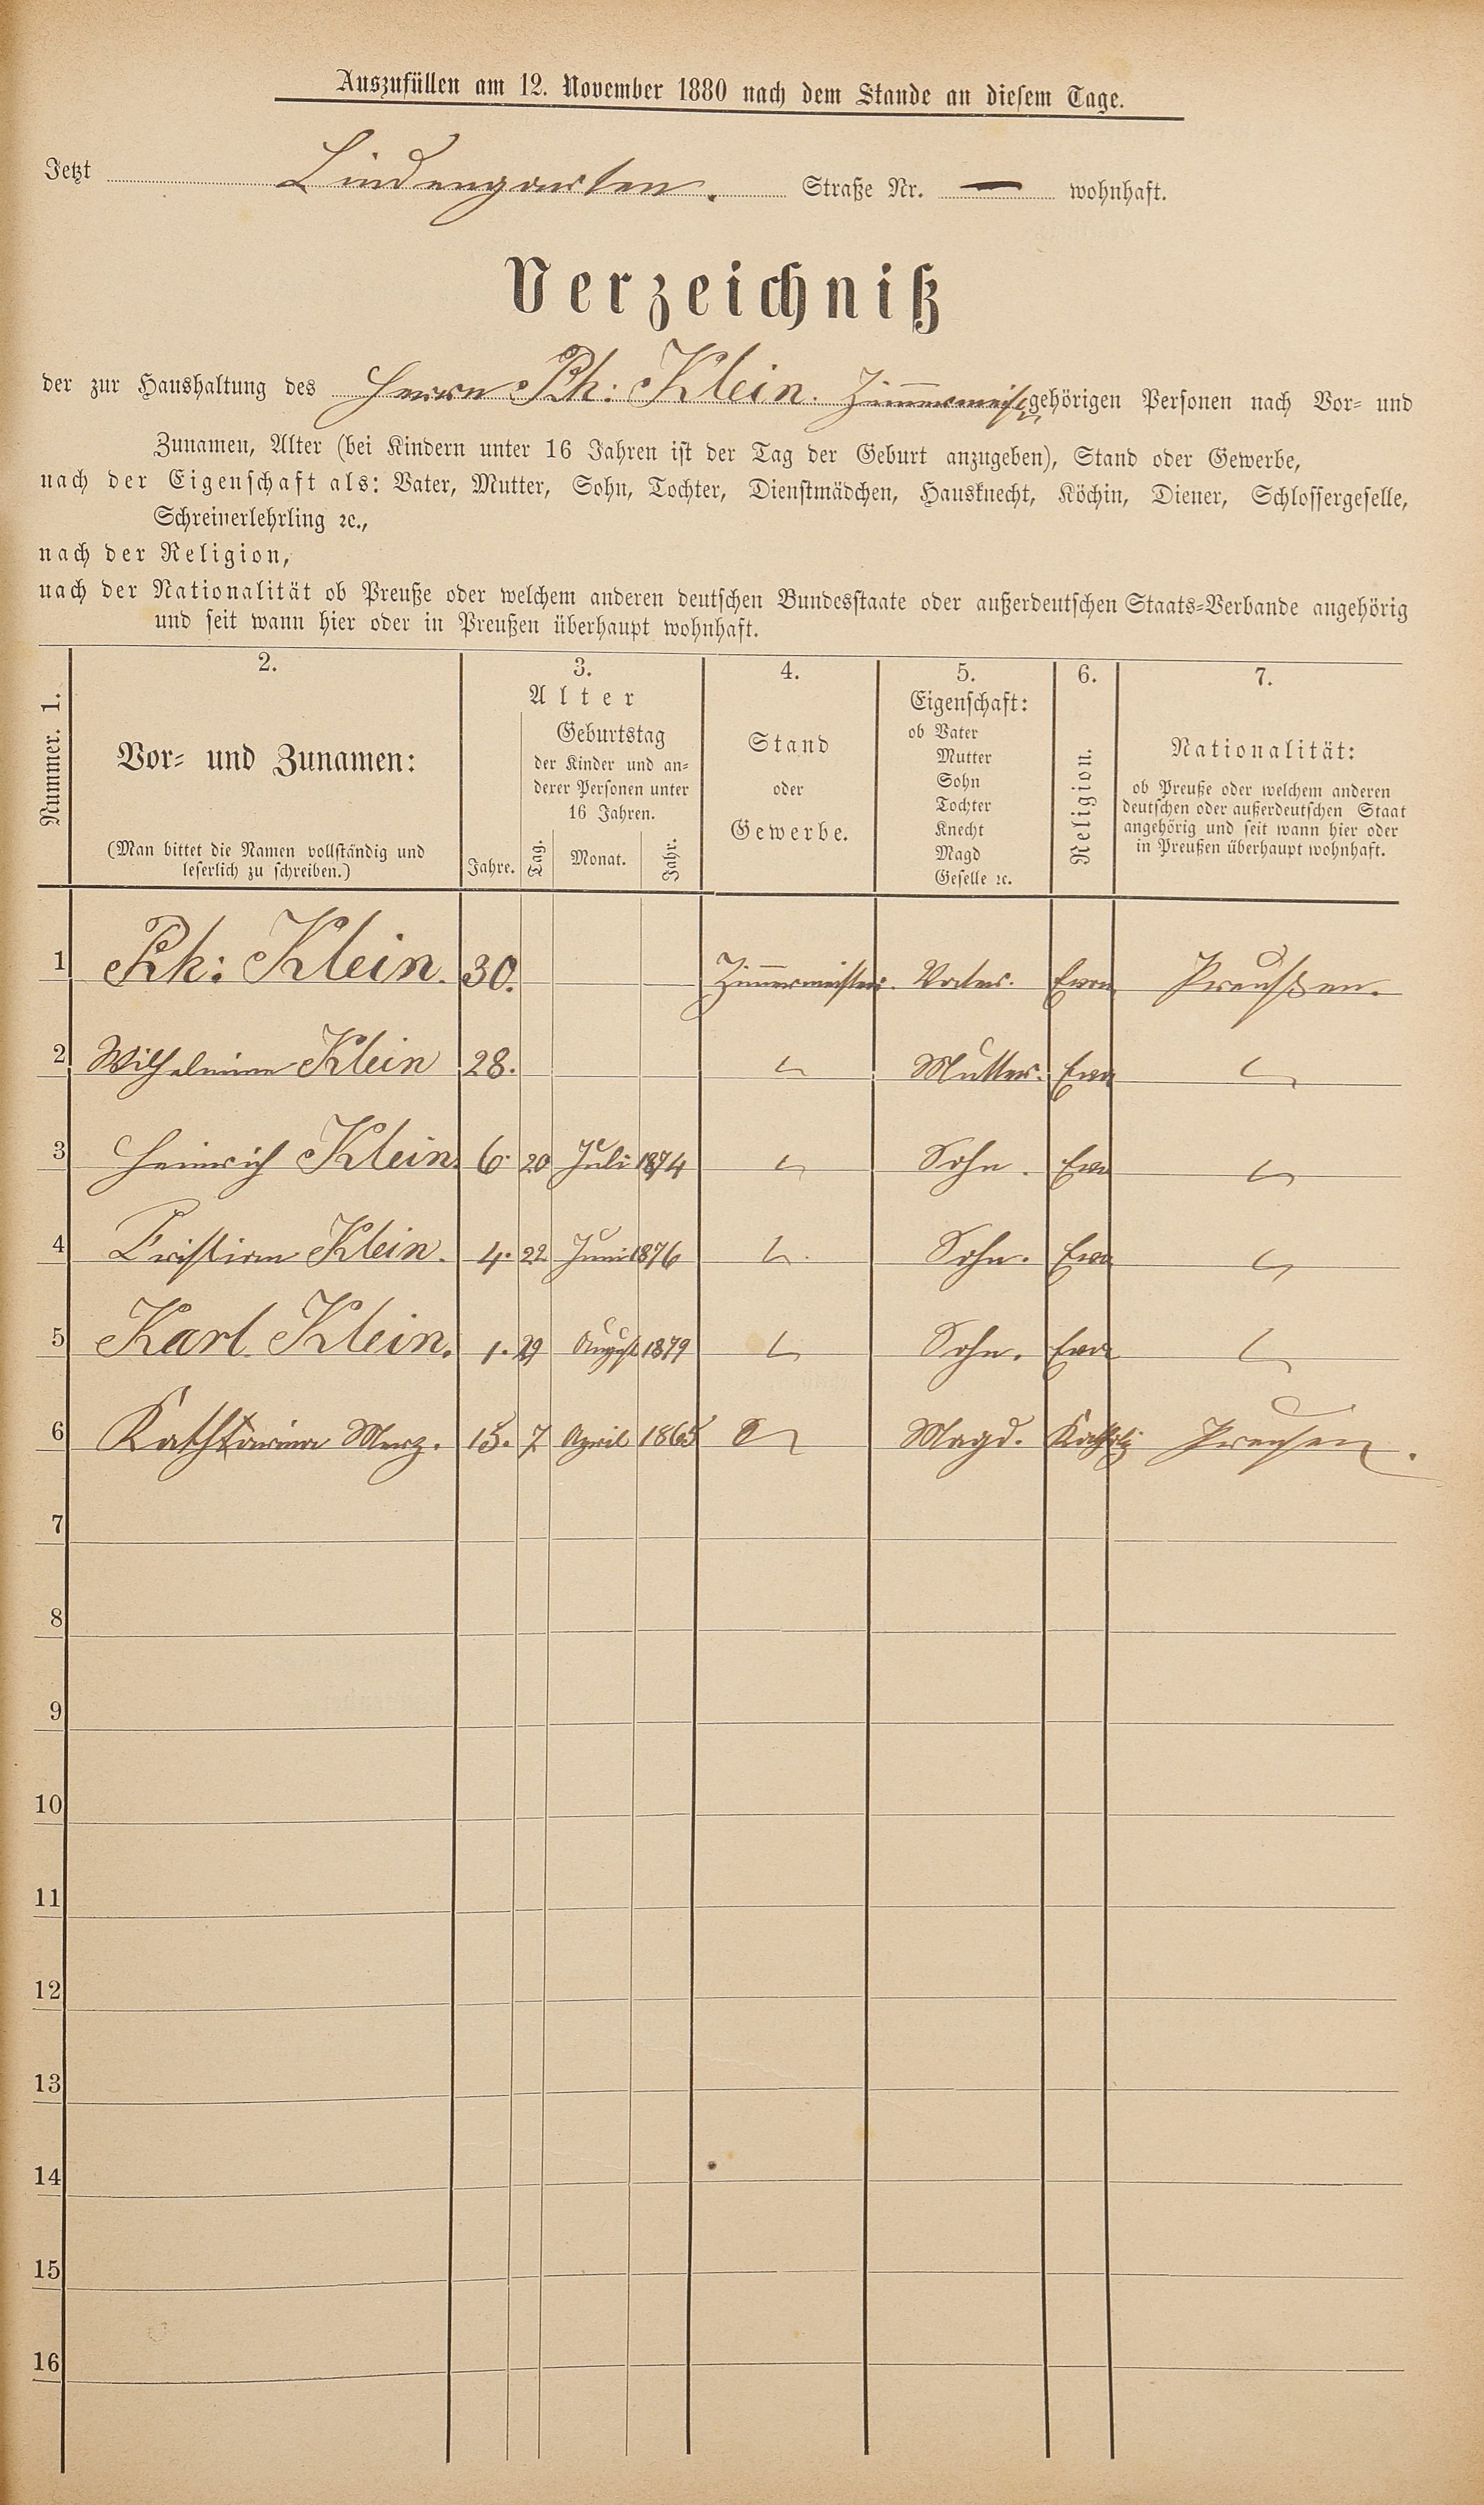 Auszufüllen am 12. November 1880 nach dem Stande an diesem Tage.
Jetzt Lindengarten. Straße Nr. — wohnhaft.
Verzeichniß
der zur Haushaltung des Herrn Ph: Klein. Zimmermeister gehörigen Personen nach Vor- und
Zunamen, Alter (bei Kindern unter 16 Jahren ist der Tag der Geburt anzugeben), Stand oder Gewerbe,
nach der Eigenschaft als: Vater, Mutter, Sohn, Tochter, Dienstmädchen, Hausknecht, Köchin, Diener, Schlossergeselle,
Schreinerlehrling ꝛc.,
nach der Religion,
nach der Nationalität ob Preuße oder welchem anderen deutschen Bundesstaate oder außerdeutschen Staats-Verbande angehörig
und seit wann hier oder in Preußen überhaupt wohnhaft.
Nummer. 1.
2.
Vor- und Zunamen:
(Man bittet die Namen vollständig und
leserlich zu schreiben.)
3.
Alter
Jahre.
Geburtstag
der Kinder und an-
derer Personen unter
16 Jahren.
Tag. Monat. Jahr.
4.
Stand
oder
Gewerbe.
5.
Eigenschaft:
ob Vater
Mutter
Sohn
Tochter
Knecht
Magd
Geselle ꝛc.
6.
Religion.
7.
Nationalität:
ob Preuße oder welchem anderen
deutschen oder außerdeutschen Staat
angehörig und seit wann hier oder
in Preußen überhaupt wohnhaft.
1 Ph: Klein. 30. Zimmermeister. Vater. Evan Preußen.
2 Wilhelmine Klein 28. Mutter. Eva
3 Heinrich Klein. 6. 20 Juli 1874 Sohn. Eva
4 Cristian Klein. 4. 22 Juni 1876 Sohn. Eva
5 Karl Klein. 1. 29 August 1879 Sohn. Eva
6 Kathtarina Merz. 15. 7 April 1865 Magd. Katholi Preusen.
7
8
9
10
11
12
13
14
15
16